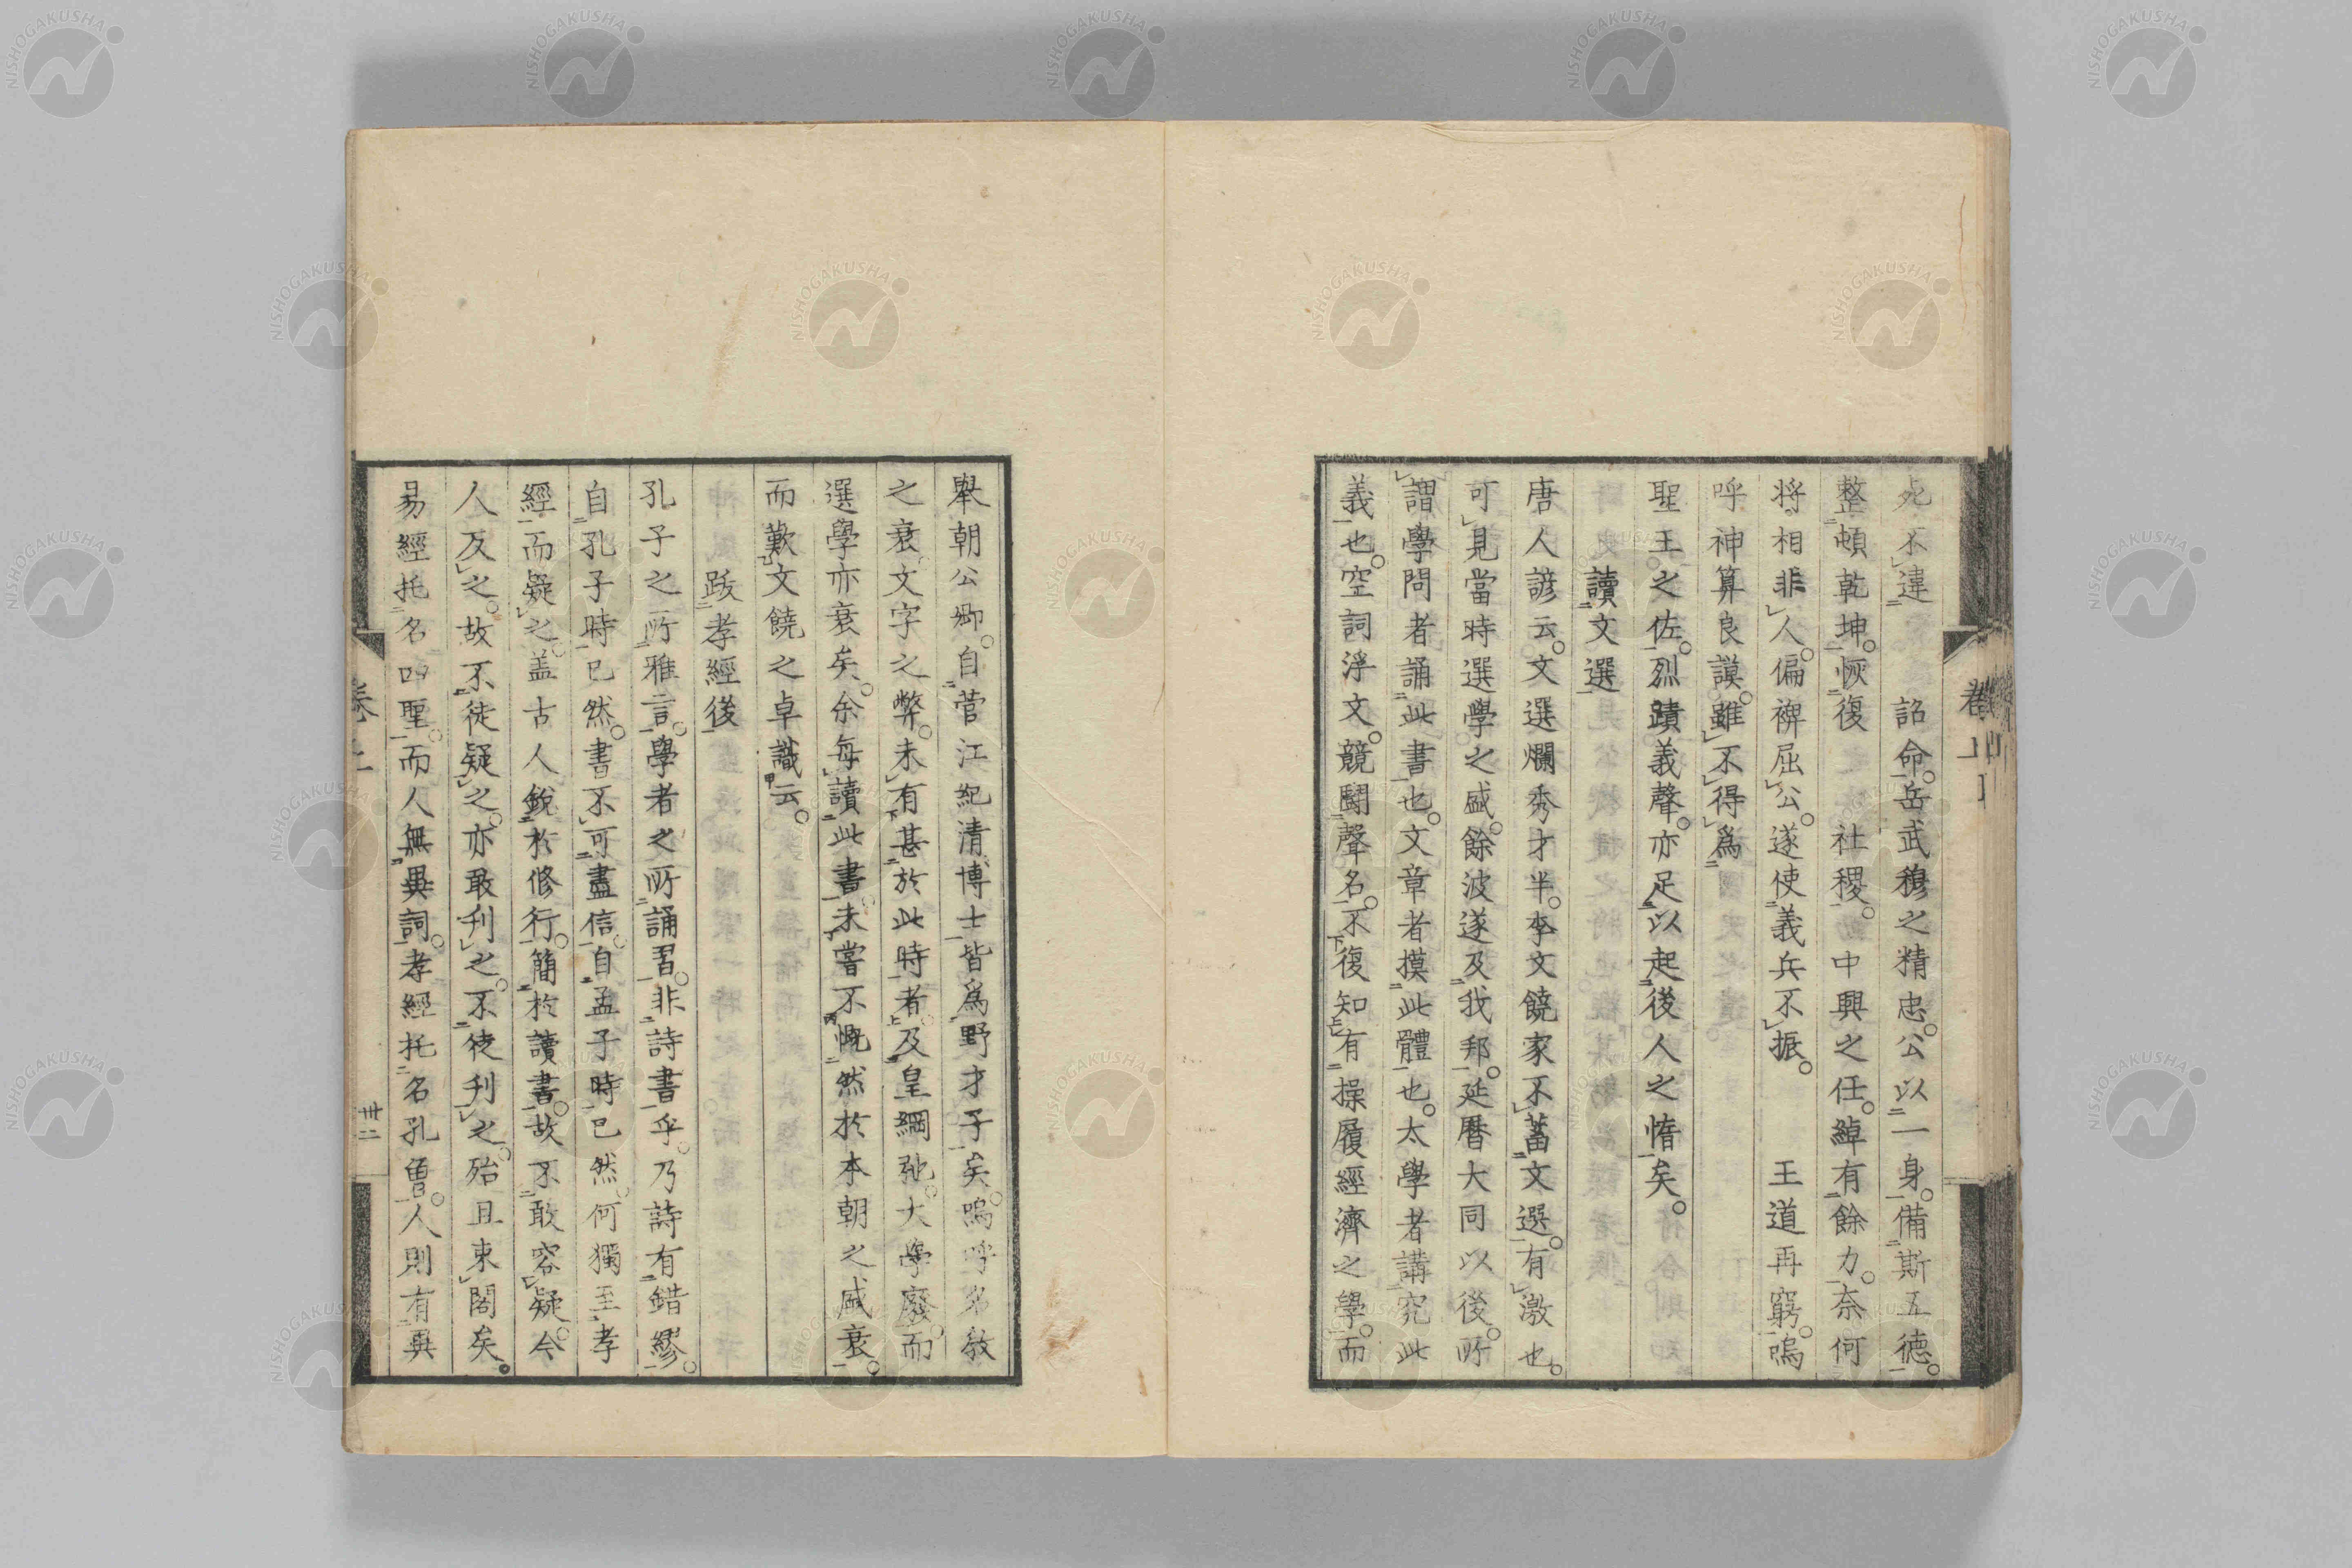 死不違　　詔命岳武穆之精忠公以一身備斯五德
整頓乾坤恢復　　社稷　中興之任綽有餘力奈何
將相非人偏裨屈公遂使義兵不振　　王道再窮嗚
呼神算良謨雖不得爲
聖王之佐烈蹟義聲亦足以起後人之惰矣
讀文選
唐人諺云文選爛秀才半李文饒家不蓄文選有激也
可見當時選學之盛餘波遂及我邦延曆大同以後所
謂學問者誦此書也文章者摸此體也太學者講究此
義也空詞浮文競鬪聲名不復知有操履經濟之學而
舉朝公卿自菅江紀清博士皆爲野才子矣嗚呼名教
之衰文字之弊未有甚於此時者及皇綱弛大學廢而
選學亦衰矣余每讀此書未嘗不慨然於本朝之盛衰
而歎文饒之卓識云
跋孝經後
孔子之所雅言學者之所誦習非詩書乎乃詩有錯繆
自孔子時已然書不可盡信自孟子時已然何獨至孝
經而疑之盖古人銳於修行簡於讀書故不敢容疑今
人反之故不徒疑之亦敢刋之不徒刋之殆且束閣矣
易經托名四聖而人無異詞孝經托名孔曾人則有異
卷上
卷上
卅二
NISHOGAKUSHA